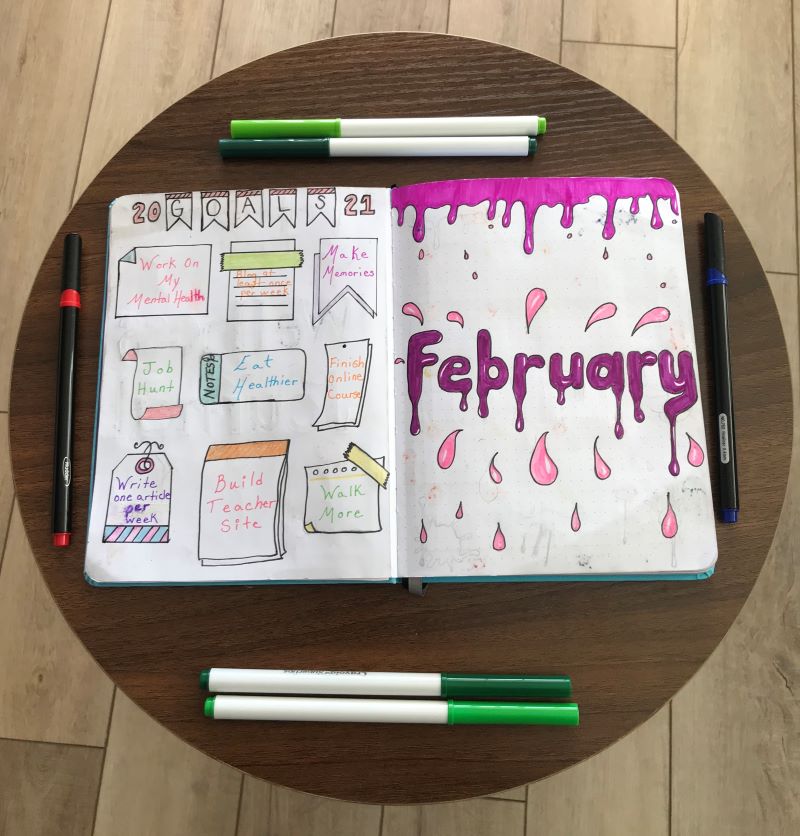 20 GOALS 21
Work On
My
Mental Health
Blog at
least once
per week
Make
Memories
Job
Hunt
NOTES
Eat
Healthier
Finish
Online
Course
Write
one article
per
week
Build
Teacher
Site
Walk
More
February